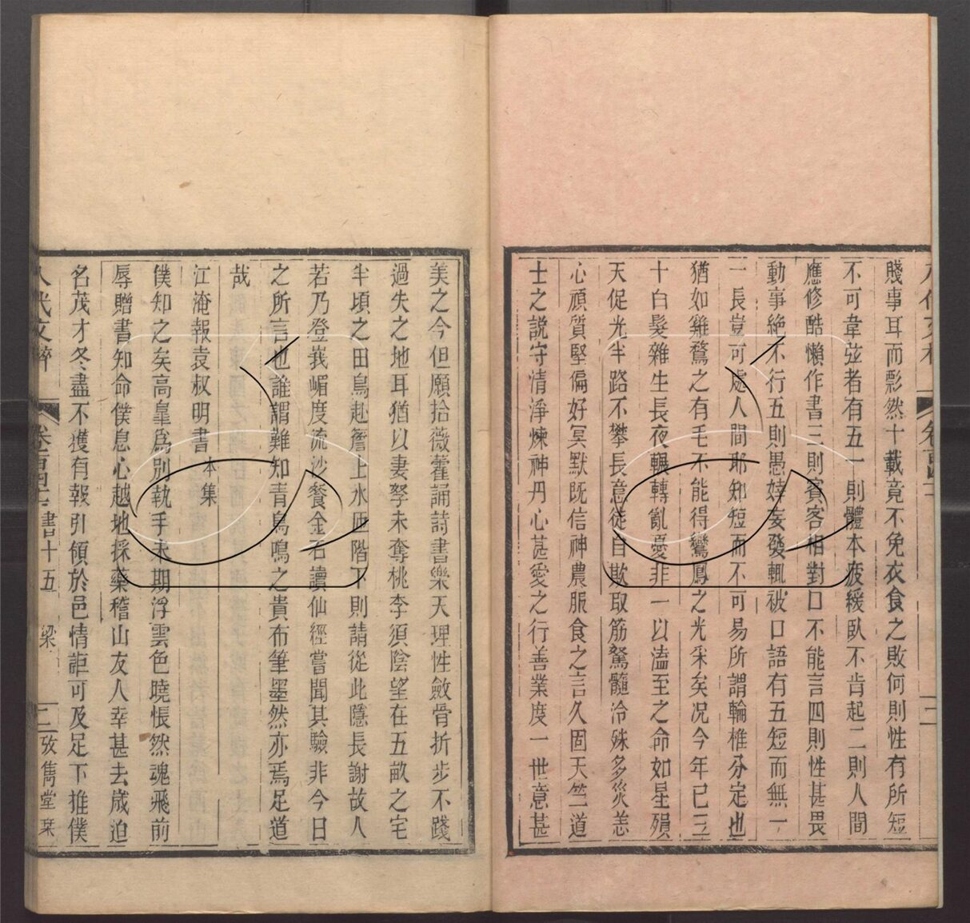 賤事耳而影然十載竟不免衣食之敗何則性有所短
不可韋弦者有五一則體本疲緩臥不肯起二則人間
應修酷懶作書三則賓客相對口不能言四則性甚畏
動事絶不行五則愚婞妄發輒被口語有五短而無一
一長豈可處人間耶知短而不可易所謂輪椎分定也
猶如雞鶩之有毛不能得鸞鳳之光采矣况今年已三
十白髮雜生長夜輾轉亂憂非一以溘至之命如星殞
天促光半路不攀長意徒自欺取筋駑髓冷殊多災恙
心頑質堅偏好冥默既信神農服食之言久固天竺道
士之説守清淨煉神丹心甚愛之行善業度一世意甚
美之今但願拾薇藿誦詩書樂天理性斂骨折步不踐
過失之地耳猶以妻孥未奪桃李須陰望在五畝之宅
半頃之田鳥赴簷上水匝階下則請從此隱長謝故人
若乃登峩嵋度流沙餐金石讀仙經嘗聞其驗非今日
之所言也誰謂難知青鳥鳴之貴布筆墨然亦焉足道
哉
江淹報袁叔明書 本集
僕知之矣高皐爲別執手未期浮雲色曉悵然魂飛前
辱贈書知命僕息心越地採藥稽山友人幸甚去歲迫
名茂才冬盡不獲有報引領於邑情詎可及足下推僕
八代文粹 書十五 梁 二 攷雋堂栞